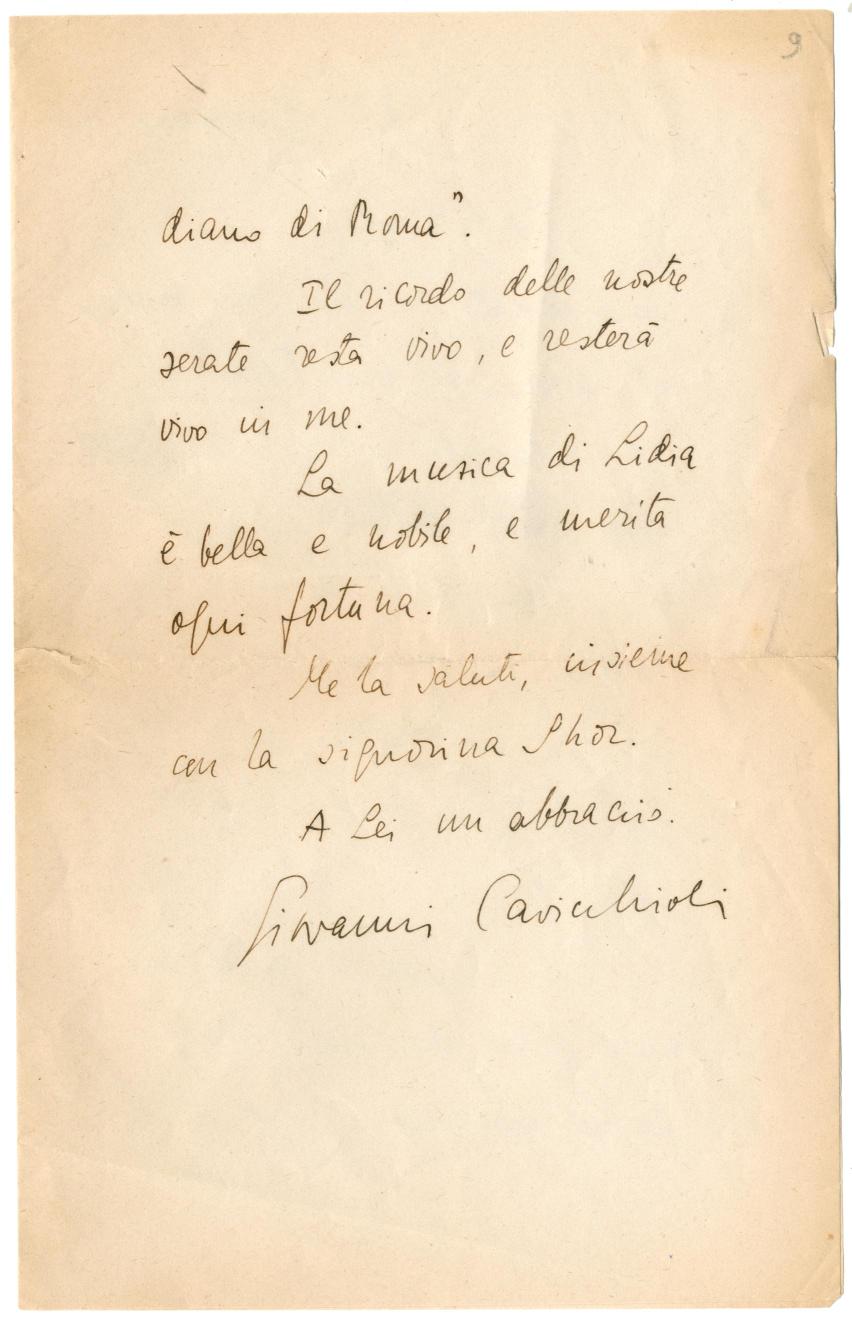 9
diano di Roma".
Il ricordo delle nostre
serate resta vivo, e resterà
vivo in me.
La musica di Lidia
è bella e nobile, e merita
ogni fortuna.
Me la saluti, insieme
con la signorina Shor.
A Lei un abbraccio.
Giovanni Cavicchioli